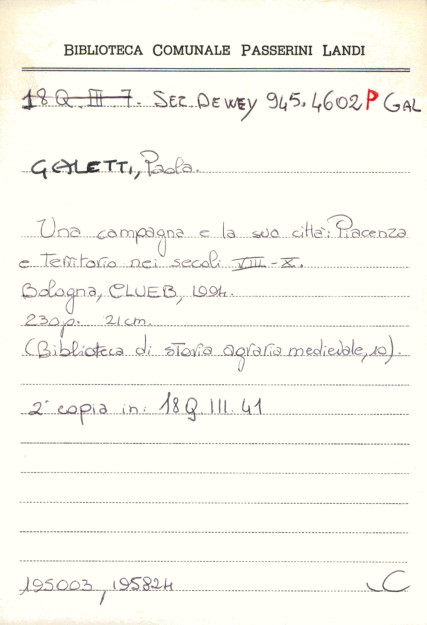 BIBLIOTECA COMUNALE PASSERINI LANDI
18 Q. III. 7. SEZ. DEWEY 945.4602 P GAL
GALETTI, Paola.
Una campagna e la sua città: Piacenza
e territorio nei secoli VIII-X.
Bologna, CLUEB, 1994.
230 p. 21 cm.
(Biblioteca di storia agraria medievale, 10).
2ª copia in: 18 Q. III. 41
195003, 195824
C